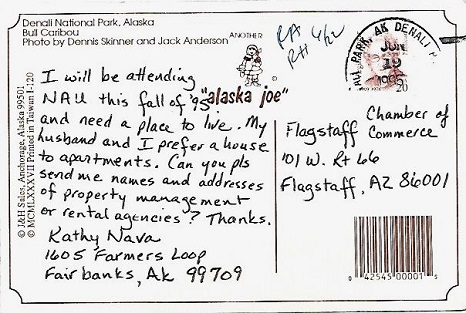 Denali National Park, Alaska
Bull Caribou
Photo by Dennis Skinner and Jack Anderson
ANOTHER
"alaska joe"
RA 6/22
RH
PARK, AK DENALI
JUN
19
20
I will be attending
NAU this fall of '95
and need a place to live. My
husband and I prefer a house
to apartments. Can you pls
send me names and addresses
of property management
or rental agencies? Thanks.
Kathy Nava
1605 Farmers Loop
Fairbanks, Ak 99709
Flagstaff Chamber of
Commerce
101 W. Rt 66
Flagstaff, AZ 86001
© J&H Sales, Anchorage, Alaska 99501
© MCMLXXXVII Printed in Taiwan 1-120
42545 00001